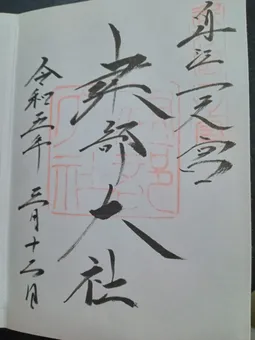 近江一之宮
建部大社
令和五年 三月十二日